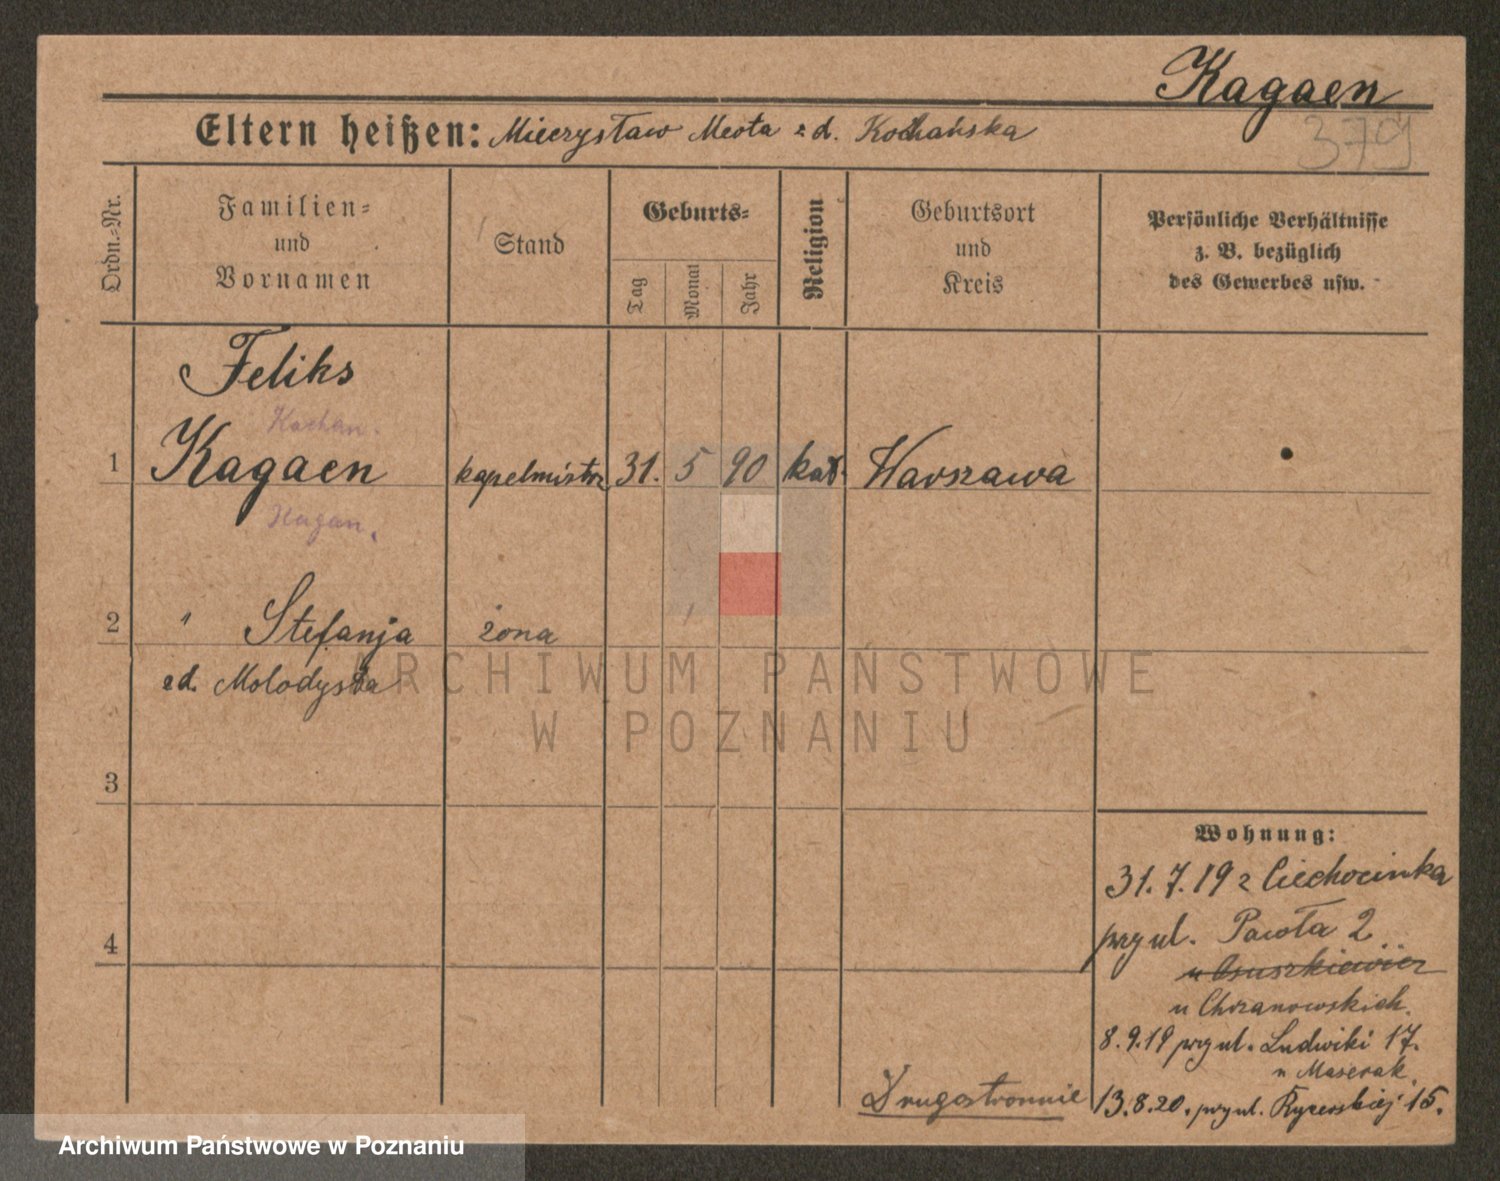 Kagaen
379
Eltern heißen: Mieczysław Meota z d. Kochańska
Ordn.-Nr.
Familien-
und
Vornamen
Stand
Geburts-
Tag
Monat
Jahr
Religion
Geburtsort
und
Kreis
Persönliche Verhältnisse
z. B. bezüglich
des Gewerbes usw.
Feliks
Kochan.
1 Kagaen kapelmistrz 31. 5 90 kat. Warszawa
Kagan.
2 " Stefanja żona
zd. Molodyska
ARCHIWUM PAŃSTWOWE
W POZNANIU
3
4
Wohnung:
31.7.19 z Ciechocinka
przy ul. Pawła 2
u Chrzanowskich.
8.9.19 przy ul. Ludwiki 17.
u Maserak.
13.8.20. przy ul. Rycerskiej 15.
Drugostronnie
Archiwum Państwowe w Poznaniu